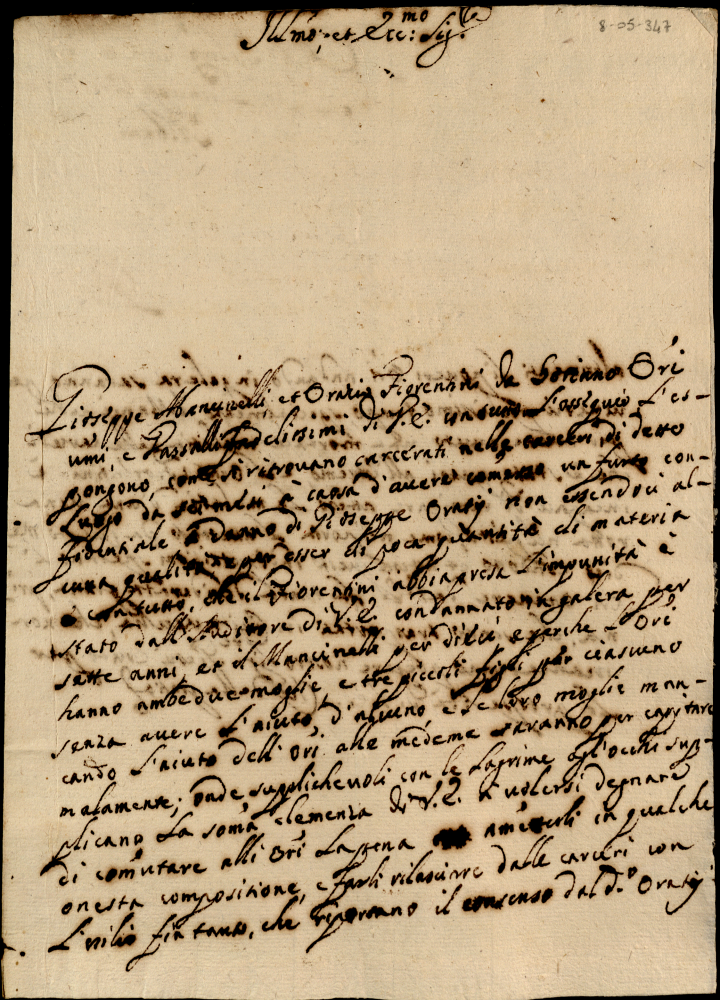 8-05-347
Ill.mo, et Ecc:mo Sig.re
Gioseppe Mancinelli, et Oratio Fiorentini da Sorinno Ori
umi, e Vassalli fedelissimi di V.E. con tutto l'ossequio l'es-
pongono, come si ritrovano carcerati nelle carceri di detto
luogo da sei mesi à causa d'avere comesso un furto con-
fidentiale à danno di Gioseppe Oratij non essendoci al-
cuna qualità per esser di poca quantità di materia
e con tutto, che il Fiorentini abbia presa l'impunità è
stato dall'Auditore di V.E. condannato in galera per
sette anni, et il Mancinelli per dieci e perche l'Ori
hanno ambedue moglie, e tre piccoli figli per ciascuno
senza avere l'aiuto d'alcuno, e le loro moglie man-
cando l'aiuto dell'Ori alle medeme saranno per capitare
malamente; onde supplichevoli con le lagrime agl'occhi sup-
plicano la soma clemenza di V.E. à volersi degnare
di comutare alli Ori la pena ametterli in qualche
onesta compositione, e farli rilasciare dalle carceri con
l'esilio fin tanto, che riporranno il consenso dal d.o Oratij